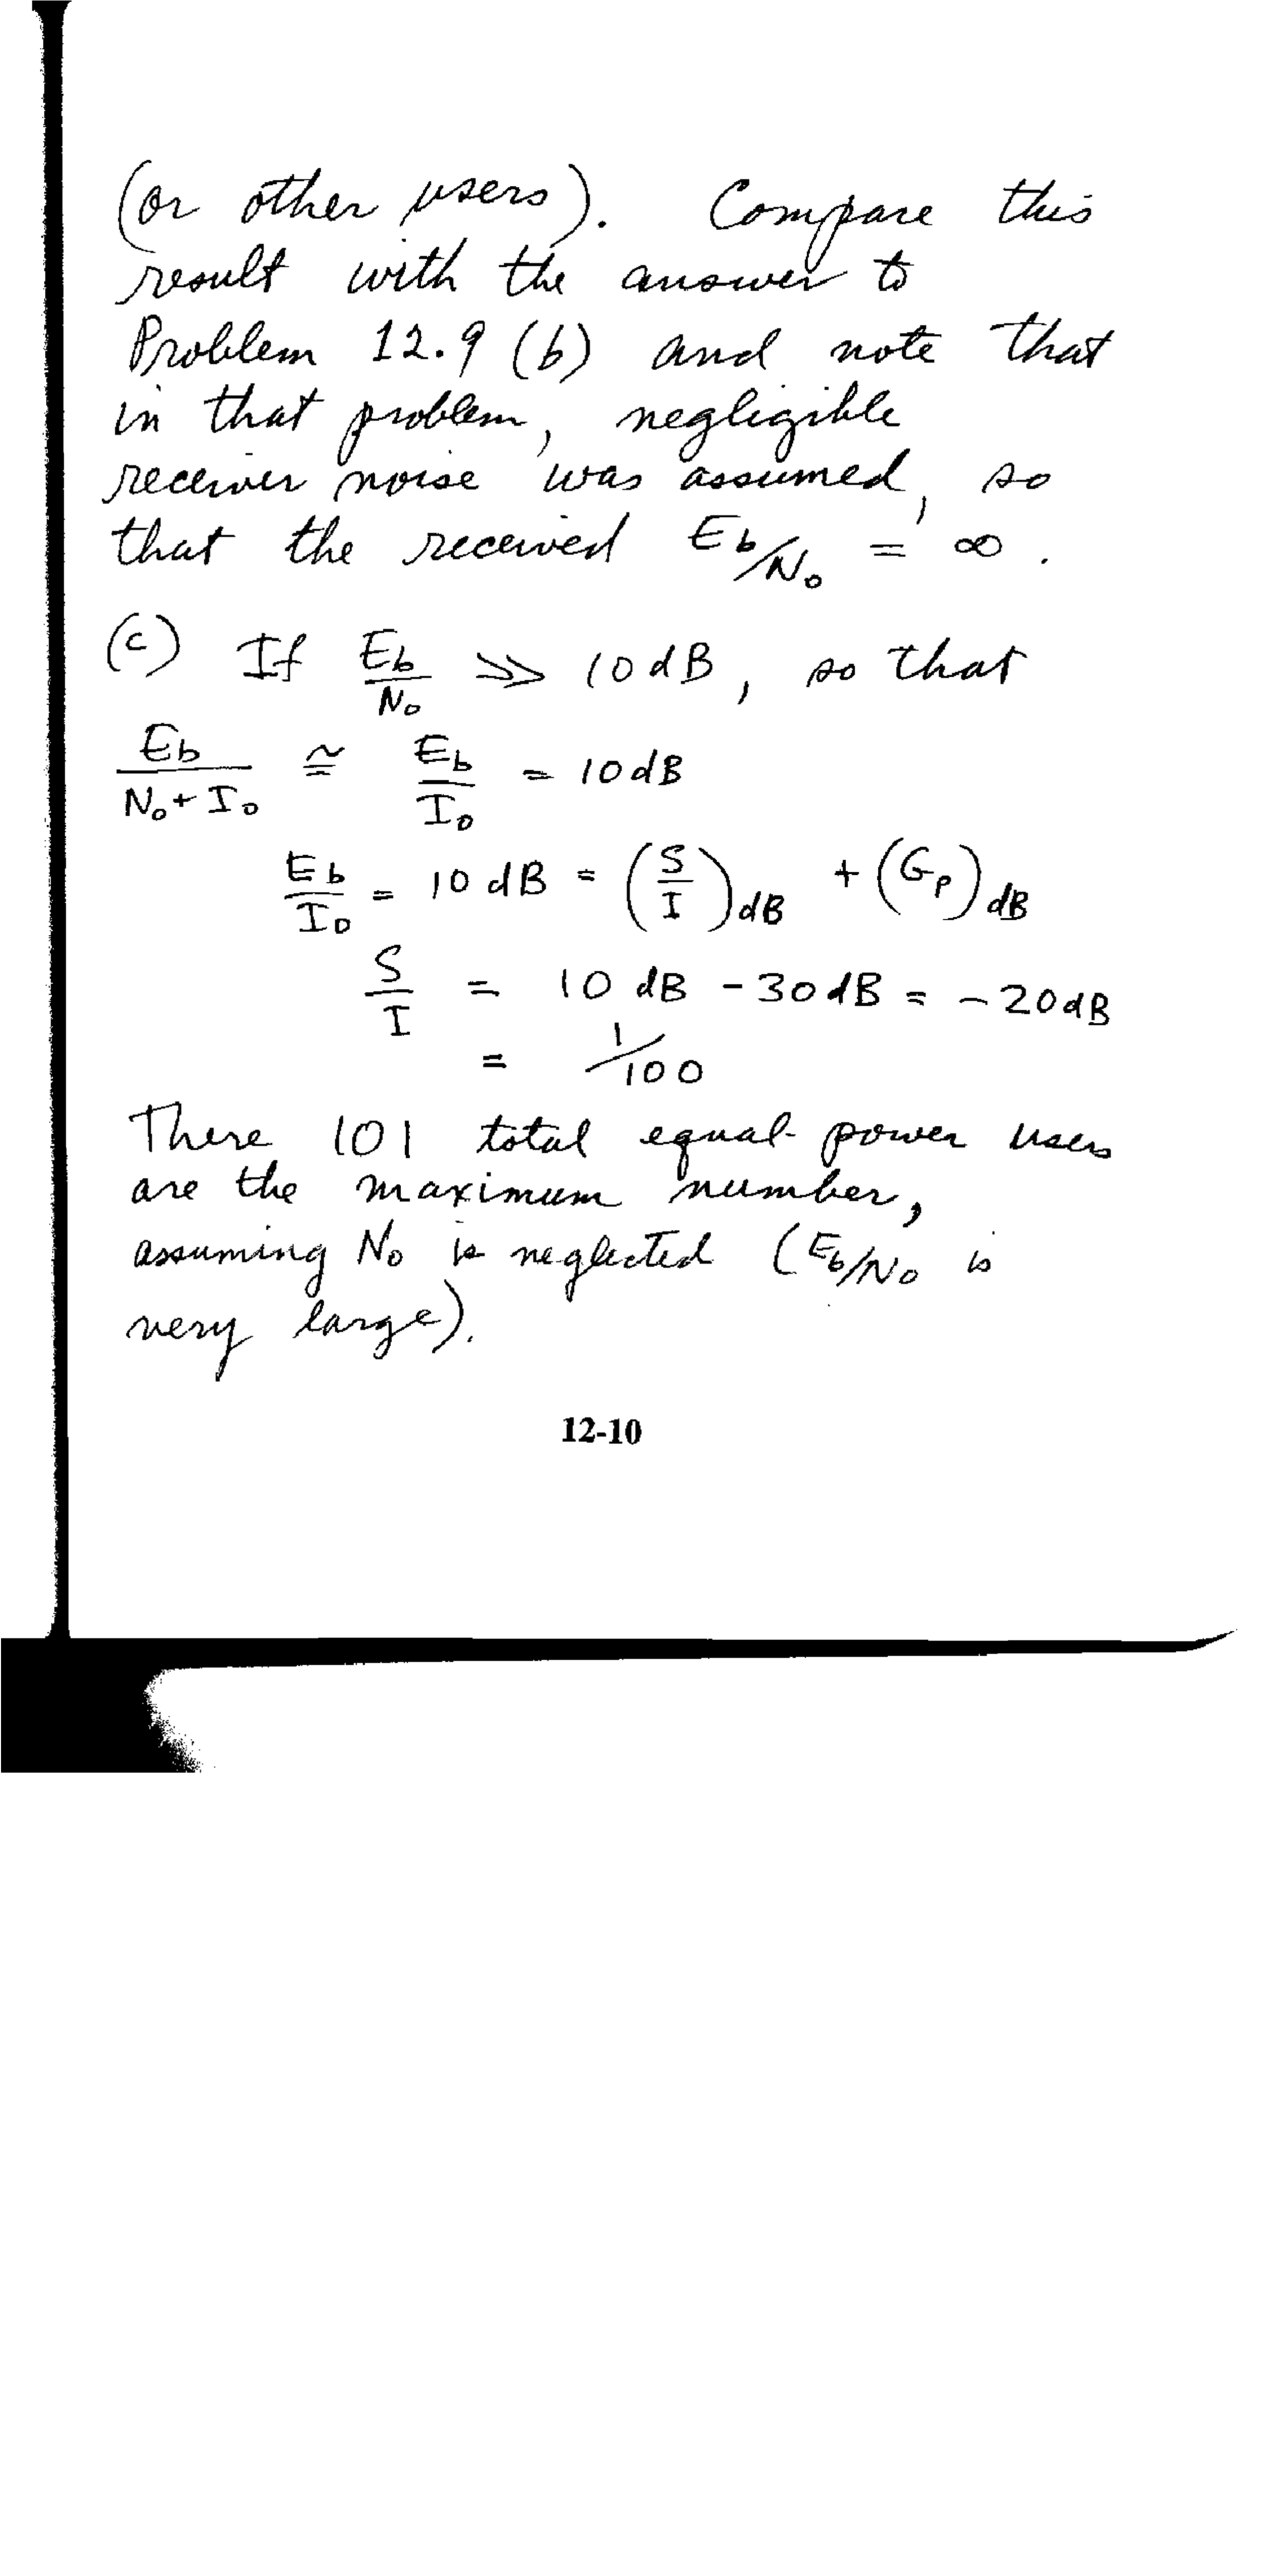 (or other users). Compare this
result with the answer to
Problem 12.9 (b) and note that
in that problem, negligible
receiver noise was assumed, so
that the received Eb/No = ∞.
(c) If Eb/No >> 10 dB, so that
Eb/(No + Io) ≅ Eb/Io = 10 dB
Eb/Io = 10 dB = (S/I)dB + (Gp)dB
S/I = 10 dB - 30 dB = -20 dB
= 1/100
There 101 total equal-power users
are the maximum number,
assuming No is neglected (Eb/No is
very large).
12-10